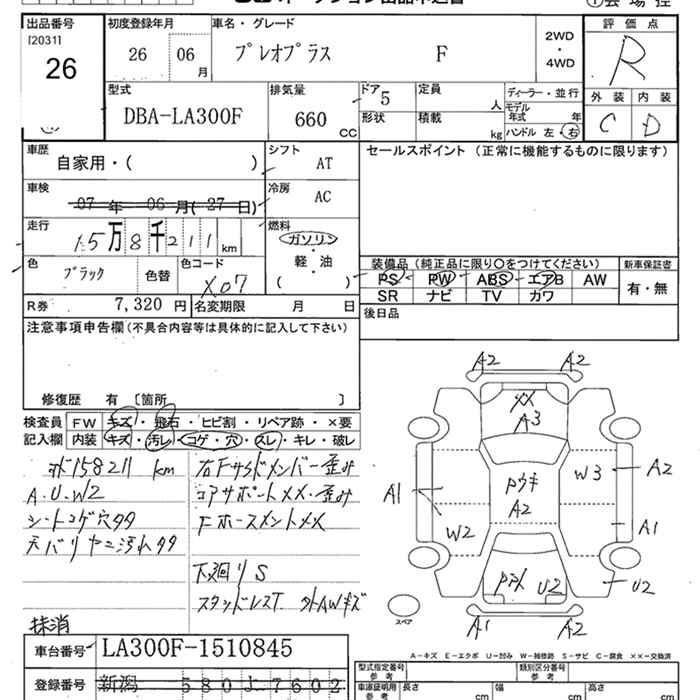 出品番号 初度登録年月 車名・グレード 評価点
[2031]
26 26 06月 プレオプラス F 2WD・4WD R
型式 排気量 ドア 定員 ディーラー・並行 外装 内装
DBA-LA300F 660 CC 5 人 モデル年式 年 C D
形状 積載 kg ハンドル 左・右
車歴 シフト セールスポイント (正常に機能するものに限ります)
自家用・( ) AT
車検 冷房
07年 06月(27日) AC
走行 燃料
15万8千211km ガソリン・軽・油
色 色コード ( ) 装備品 (純正品に限り○をつけてください) 新車保証書
ブラック 色替 X07 PS PW ABS エアB AW 有・無
SR ナビ TV カワ
R券 7,320円 名変期限 月 日 後日品
注意事項申告欄(不具合内容等は具体的に記入して下さい)
修復歴 有 〔箇所 〕
検査員 FW キズ・飛石・ヒビ割・リペア跡・×要
記入欄 内装 キズ・汚レ・コゲ・穴・スレ・キレ・破レ
158211 km 右Fサイドメンバー歪み
A.U.W2 コアサポートXX・歪み
シートコゲ穴タタ Fホースメントxx
天バリヤニ汚れタタ
下廻りS
スタッドレスT 外AWキズ
抹消
車台番号 LA300F-1510845
登録番号 新潟 580 よ 7602
A2 A2
XX
A3
Pウキ
A2
W3 A2
A1
W2 A1
U2 U2
A1 A2
スペア
A-キズ E-エクボ U-凹み W-補修跡 S-サビ C-腐食 ××-交換済
型式指定番号 参考 類別区分番号 参考
車庫証明用 参考 長さ cm 幅 cm 高さ cm